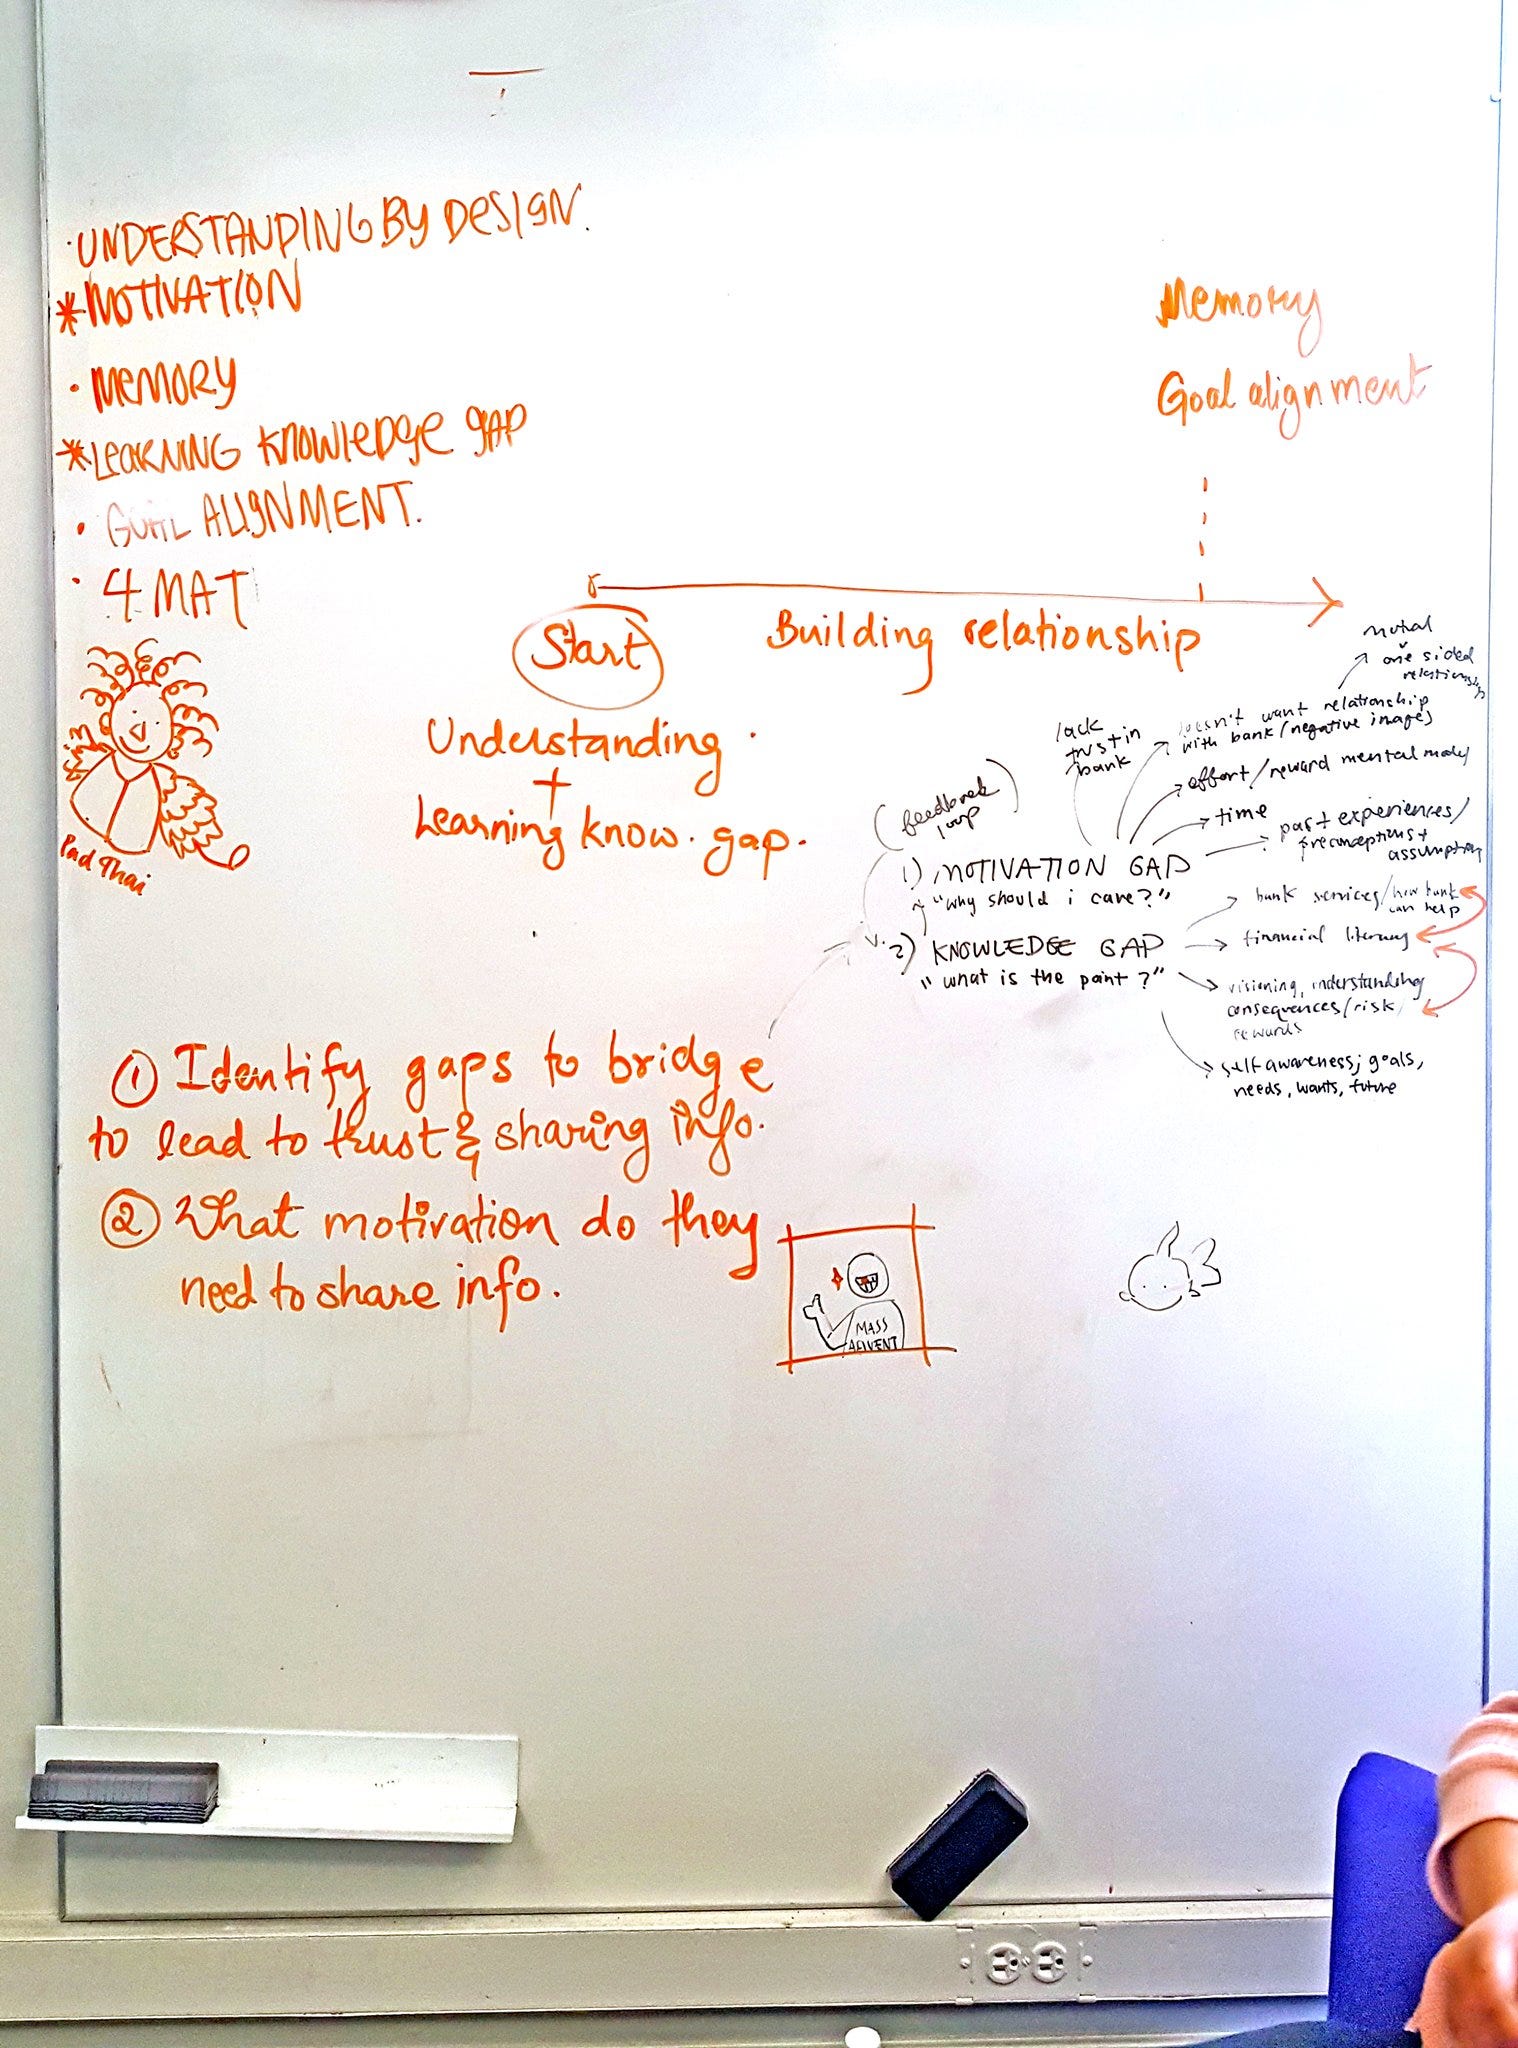 · UNDERSTANDING BY DESIGN.
* MOTIVATION
· MEMORY
* LEARNING KNOWLEDGE GAP
· GOAL ALIGNMENT.
· 4 MAT
Pad Thai
Memory
Goal alignment
Start
Building relationship
Understanding
+
Learning know. gap.
(feedback
loop)
lack
trust in
bank
doesn't want relationship
with bank (negative image)
one sided
relationship
effort/reward mental model
time
past experiences/
preconceptions +
assumption
1) MOTIVATION GAP
"why should i care?"
bank services/how bank
can help
2) KNOWLEDGE GAP
"what is the point?"
financial literacy
visioning, understanding
consequences/risk/
rewards
self awareness; goals,
needs, wants, future
① Identify gaps to bridge
to lead to trust & sharing info.
② What motivation do they
need to share info.
MASS